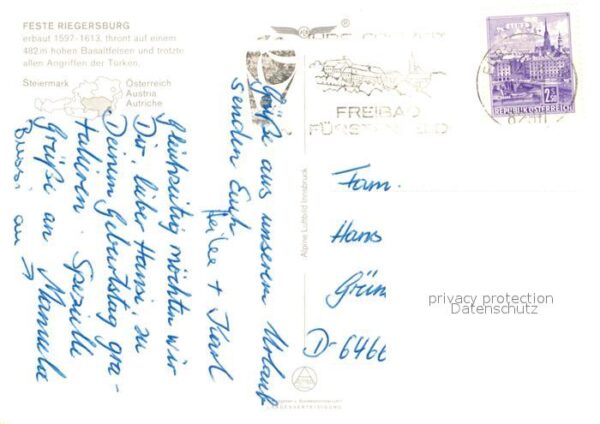 FESTE RIEGERSBURG
erbaut 1597-1613, thront auf einem
482m hohen Basaltfelsen und trotzte
allen Angriffen der Türken.
Steiermark
Österreich
Austria
Autriche
FREIBAD
FÜRSTENFELD
2.50
REPUBLIK ÖSTERREICH
Grüße aus unserem Urlaub
senden Euch
+ Karl
Gleichzeitig möchten wir
Dir, lieber Hansi, zu
Deinem Geburtstag gra-
tulieren. Spezielle
Grüße an Manuela
Bussi an →
Alpine Luftbild Innsbruck
Fam.
Hans
Grün
D-6466
privacy protection
Datenschutz